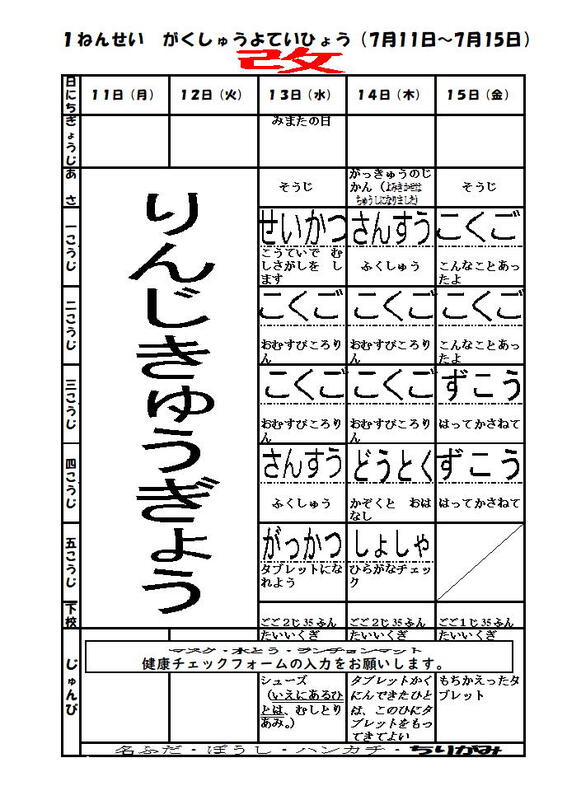 1ねんせい　がくしゅうよていひょう（7月11日～7月15日）
改
日にち
11日（月）
12日（火）
13日（水）
14日（木）
15日（金）
ぎょうじ
みまたの日
あさ
りんじきゅうぎょう
そうじ
がっきゅうのじ
かん（よみきかせは
ちゅうしになりました）
そうじ
一こうじ
せいかつ
こうていで　む
しさがしを　し
ます
さんすう
ふくしゅう
こくご
こんなことあっ
たよ
二こうじ
こくご
おむすびころり
ん
こくご
おむすびころり
ん
こくご
こんなことあっ
たよ
三こうじ
こくご
おむすびころり
ん
こくご
おむすびころり
ん
ずこう
はってかさねて
四こうじ
さんすう
ふくしゅう
どうとく
かぞくと　おは
なし
ずこう
はってかさねて
五こうじ
がっかつ
タブレットにな
れよう
しょしゃ
ひらがなチェッ
ク
下校
ごご2じ35ふん
ごご2じ35ふん
ごご1じ35ふん
じゅんび
たいいくぎ
たいいくぎ
たいいくぎ
マスク・水とう・ランチョンマット
健康チェックフォームの入力をお願いします。
シューズ
（いえにあるひ
とは、むしとり
あみ。）
タブレットかく
にんできたひと
は、このひにタ
ブレットをもっ
てきてよい
もちかえったタ
ブレット
名ふだ・ぼうし・ハンカチ・ちりがみ